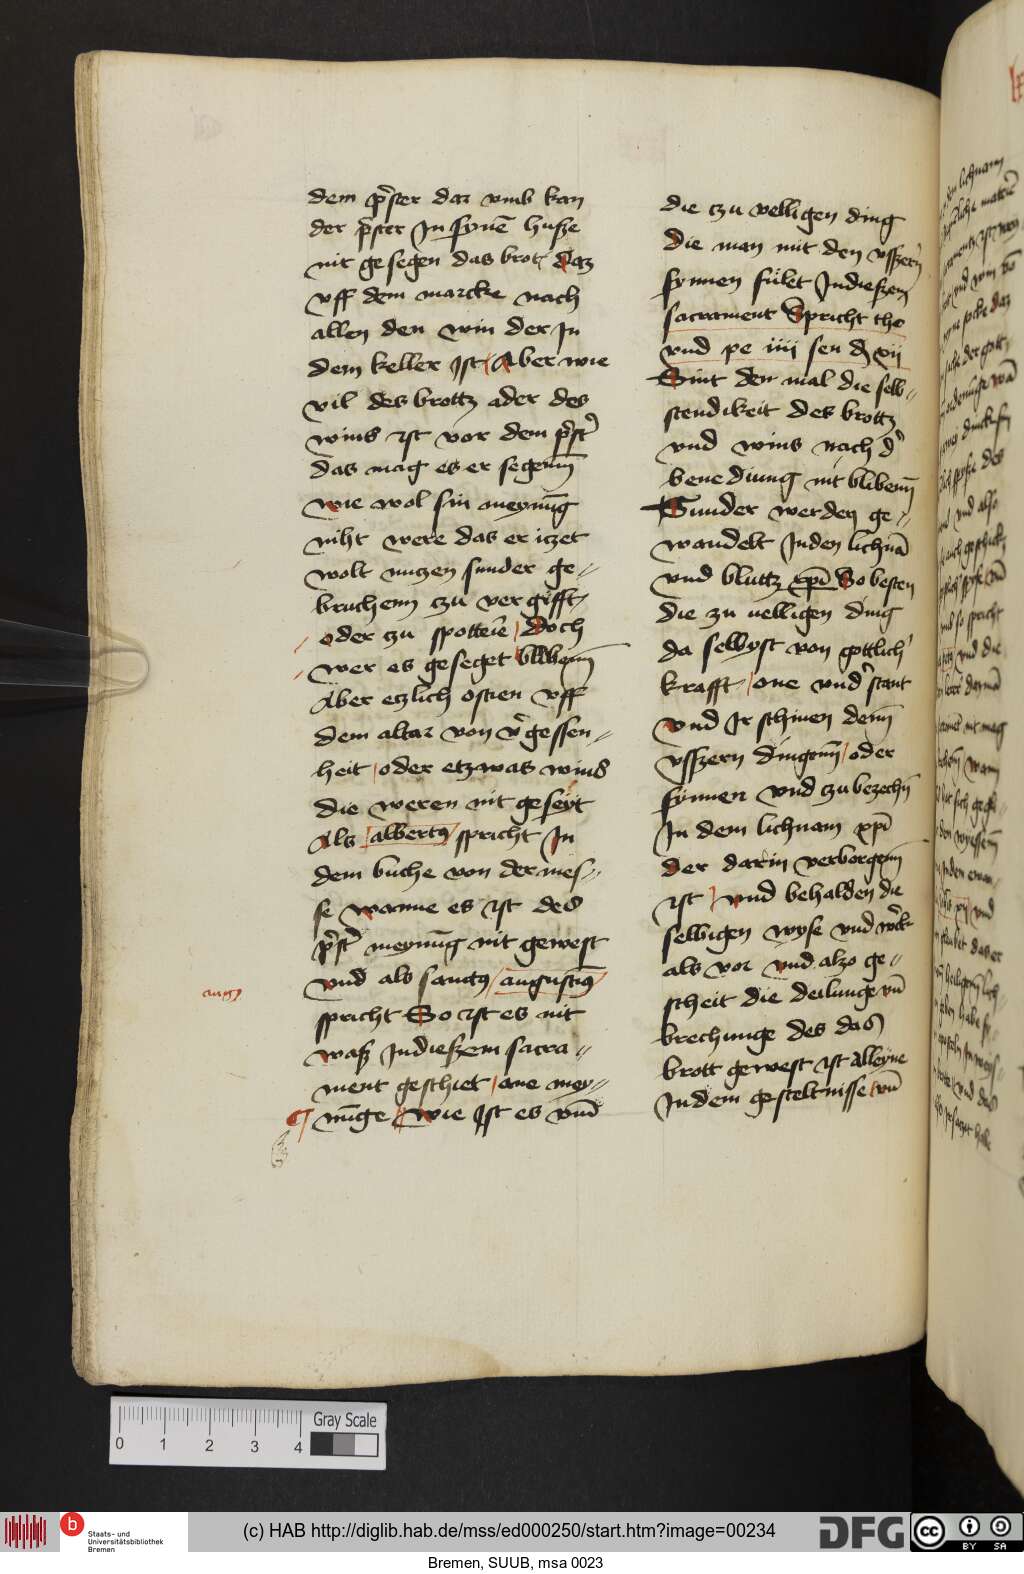 dem pͤster dar vmb kan
der pͤster In synē husze
nit gesegen das brot daz
vff dem marckte nach
allen den win der In
dem keller Jst Aber wie
vil des brottz ader des
wins ist vor dem pͤstͤ
das mag es er segenn̄
wie wol sin meynūg
niht were das er iczet
wolt nuczen sunder ge〃
bruchenn czu ver gifft
oder zu spotterie doch
wer es geseget blibenn̄
Aber etzlich ostien vff
dem altar von vͤgessen〃
heit oder etzwas wins
die weren nit geseyt
Als albertꝰ spricht In
dem buche von der mes〃
se wanne es ist des
pͤstͤ meynūg nit gewest
vnd als sanctꝰ augustiꝰ
augꝰ
spricht So ist es nit
wasz Jndieszem sacra〃
ment geschiet one mey〃
nūge wie Jst es vm̄
die czu velligen ding
die man mit den vsszern
synnen fulet Jndieszem
sacrament Spricht tho
vnd pe iiii sen d xii
Sint der mal die selb〃
stendikeit des brottz
vnd wins nach dͤ
benediung nit blibenn̄
Sunder werden ge〃
wandelt Jnden lichnā
vnd bluttz xpī So besten
die zu uelligen ding
da selbyst von gottlichͤ
krafft one vndͤstant
vnd Jr schinen denn̄
vsszern dingenn̄ oder
synnen vnd czu bezechn̄
Jn dem lichnam xpī
der darin verborgenn̄
ist vnd behalden die
selbigen wyse vnd wͤck
als vor vnd alzo ge〃
scheit die deilunge vn̄
brechunge des das
brott gewest ist alleyne
Jndem gesteltnisse vn̄
Gray Scale
0 1 2 3 4
Staats- und
Universitätsbibliothek
Bremen
(c) HAB http://diglib.hab.de/mss/ed000250/start.htm?image=00234
DFG
cc BY SA
Bremen, SUUB, msa 0023